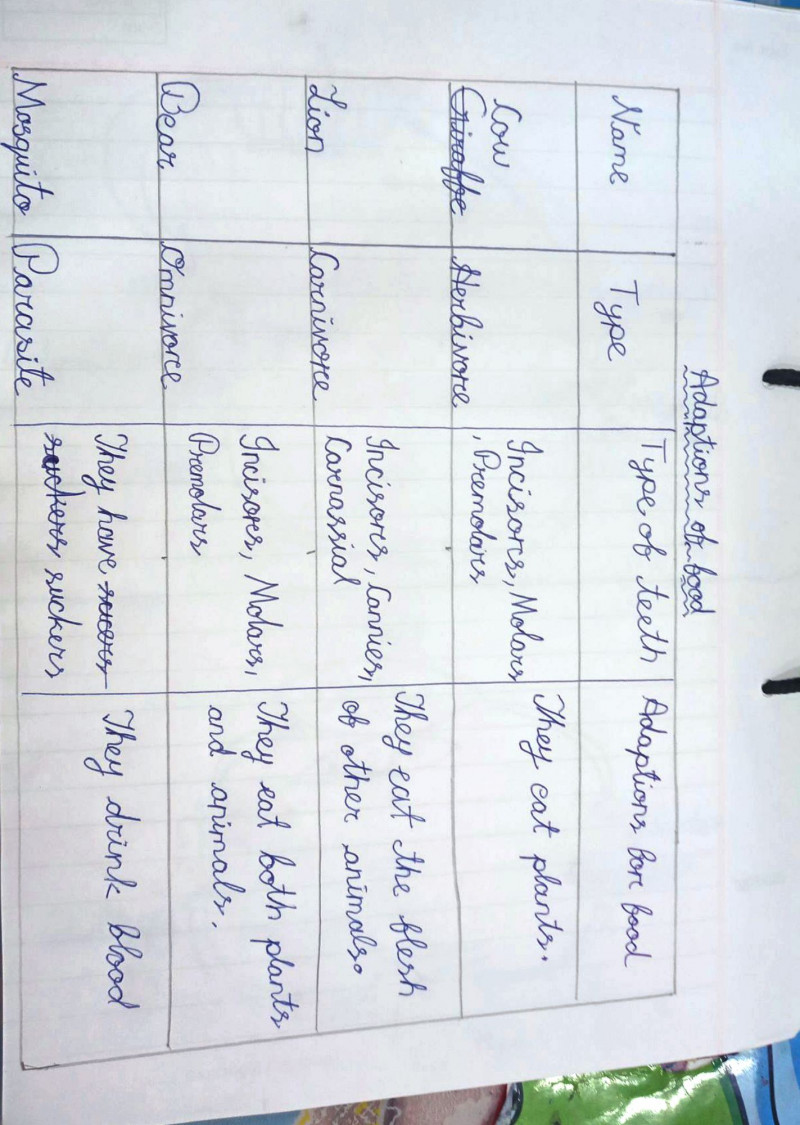 Adaptions of food
Name Type Type of teeth Adaptions for food
Cow
Giraffe Herbivore Incisors, Molars They eat plants.
, Premolars
Lion Carnivore Incisors, Cannies, They eat the flesh
Carnassial of other animals.
Bear Omnivorce Incisors, Molars, They eat both plants
Premolars and animals.
Mosquito Parasite They have sucers They drink blood
suckers suckers